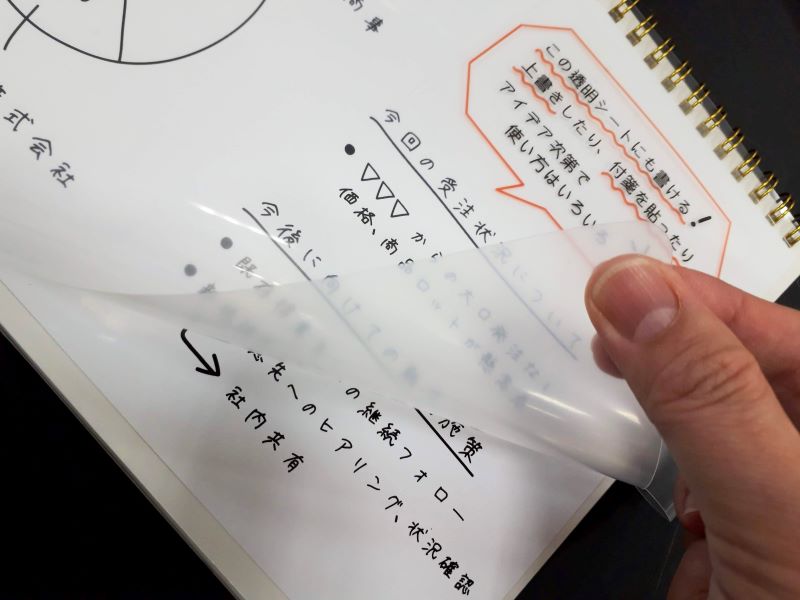 商事
式会社
この透明シートにも書ける！
上書きしたり、付箋を貼ったり
アイデア次第で
使い方はいろいろ
今回の受注状況について
● ▽▽▽から の大口発注なし
価格、商品 ロットが
今後に向けての 施策
● 既存 の継続フォロー
● 先へのヒアリング、状況確認
社内共有